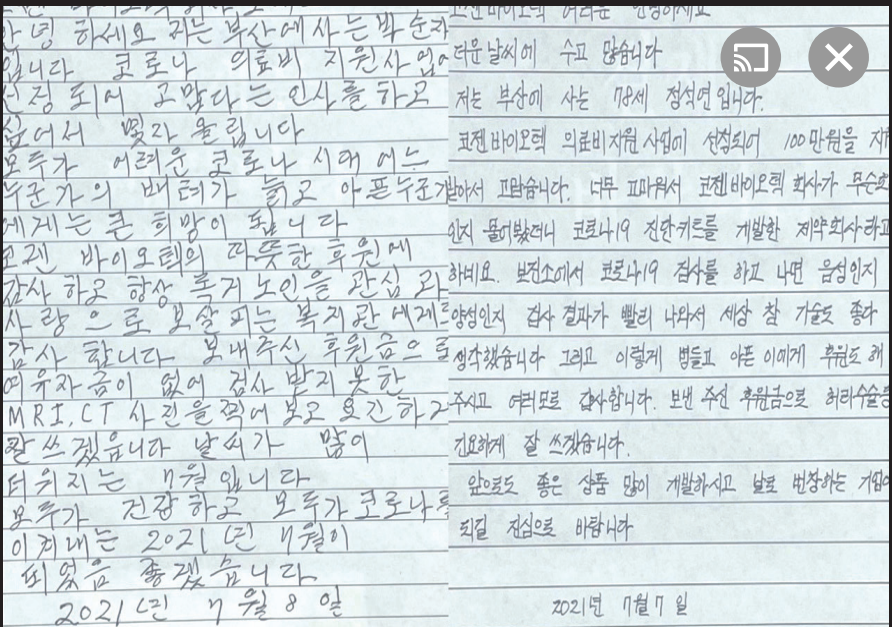 안녕 하세요 저는 부산에 사는 박순자
입니다 코로나 의료비 지원사업에
선정 되어 고맙다는 인사를 하고
싶어서 몇자 올립니다
모두가 어려운 코로나 시대 어느
누군가의 배려가 늙고 아픈누군가
에게는 큰 희망이 됩니다
코젠 바이오텍의 따뜻한 후원에
감사 하고 항상 독거 노인을 관심 과
사랑으로 보살피는 복지관에게도
감사 합니다 보내주신 후원금으로
여유자금이 없어 검사 받지 못한
MRI, CT 사진을 찍어 보고 요긴하게
잘 쓰겠읍니다 날씨가 많이
더워지는 7월 입니다
모두가 건강하고 모두가 코로나를
이겨내는 2021년 7월이
되었음 좋겠습니다
2021년 7월 8일
코젠바이오텍 여러분 안녕하세요
더운날씨에 수고 많습니다
저는 부산에 사는 78세 정석연입니다.
코젠바이오텍 의료비지원 사업에 선정되어 100만원을
받아서 고맙습니다. 너무 고마워서 코젠바이오텍 회사가 무슨회
인지 물어봤더니 코로나19 진단키트를 개발한 제약회사라고
하네요. 보건소에서 코로나19 검사를 하고 나면 음성인지
양성인지 검사 결과가 빨리 나와서 세상 참 기술도 좋다
생각했습니다 그리고 이렇게 병들고 아픈 이에게 후원도 해
주시고 여러모로 감사합니다. 보낸 주신 후원금으로 허리수술
긴요하게 잘 쓰겠습니다.
앞으로도 좋은 상품 많이 개발하시고 날로 번창하는 기업이
되길 진심으로 바랍니다
2021년 7월 7일